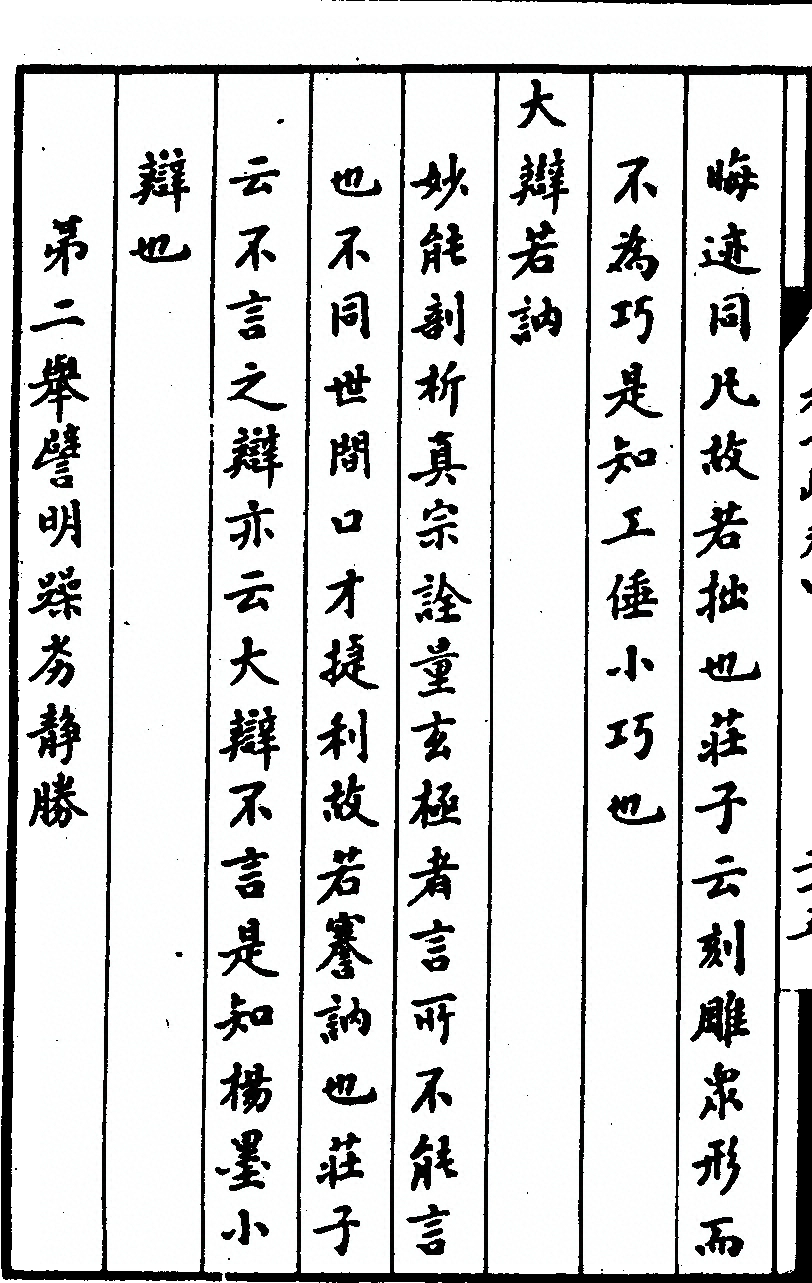 晦迹同凡故若拙也莊子云刻雕衆形而
不為巧是知工倕小巧也
大辯若訥
妙能剖析真宗詮量玄極者言所不能言
也不同世間口才捷利故若謇訥也莊子
云不言之辯亦云大辯不言是知楊墨小
辯也
第二舉譬明躁劣静勝